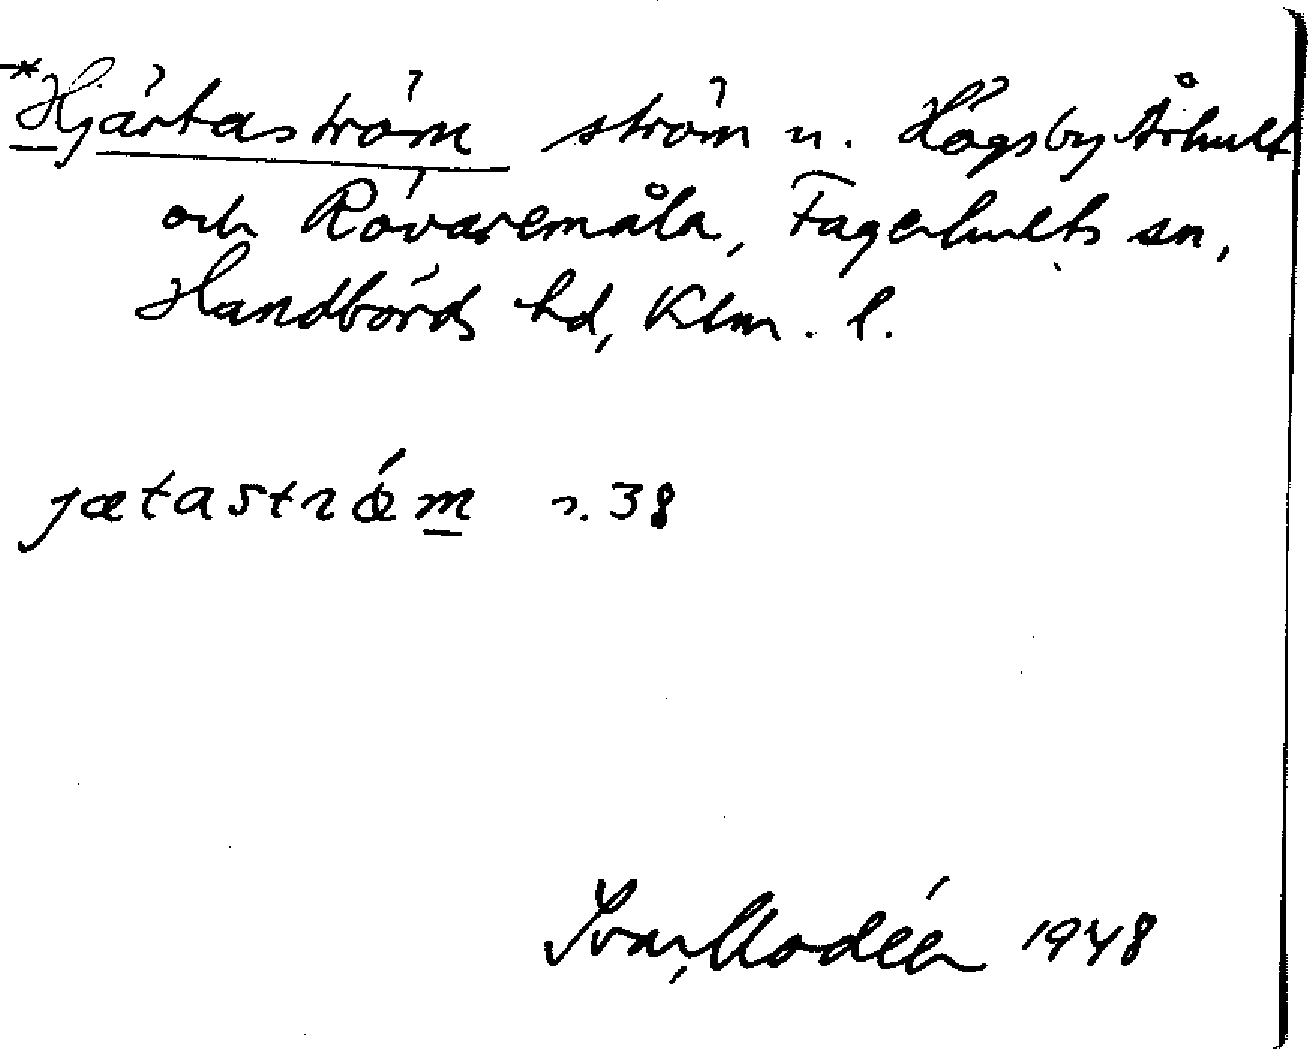 *Hjärtaström ström n. Högsby Århult
och Rövaremåla, Fagerhults sn,
Handbörds hd, Klm. l.
jætaströ́m s. 38
Ivar Modéer 1948